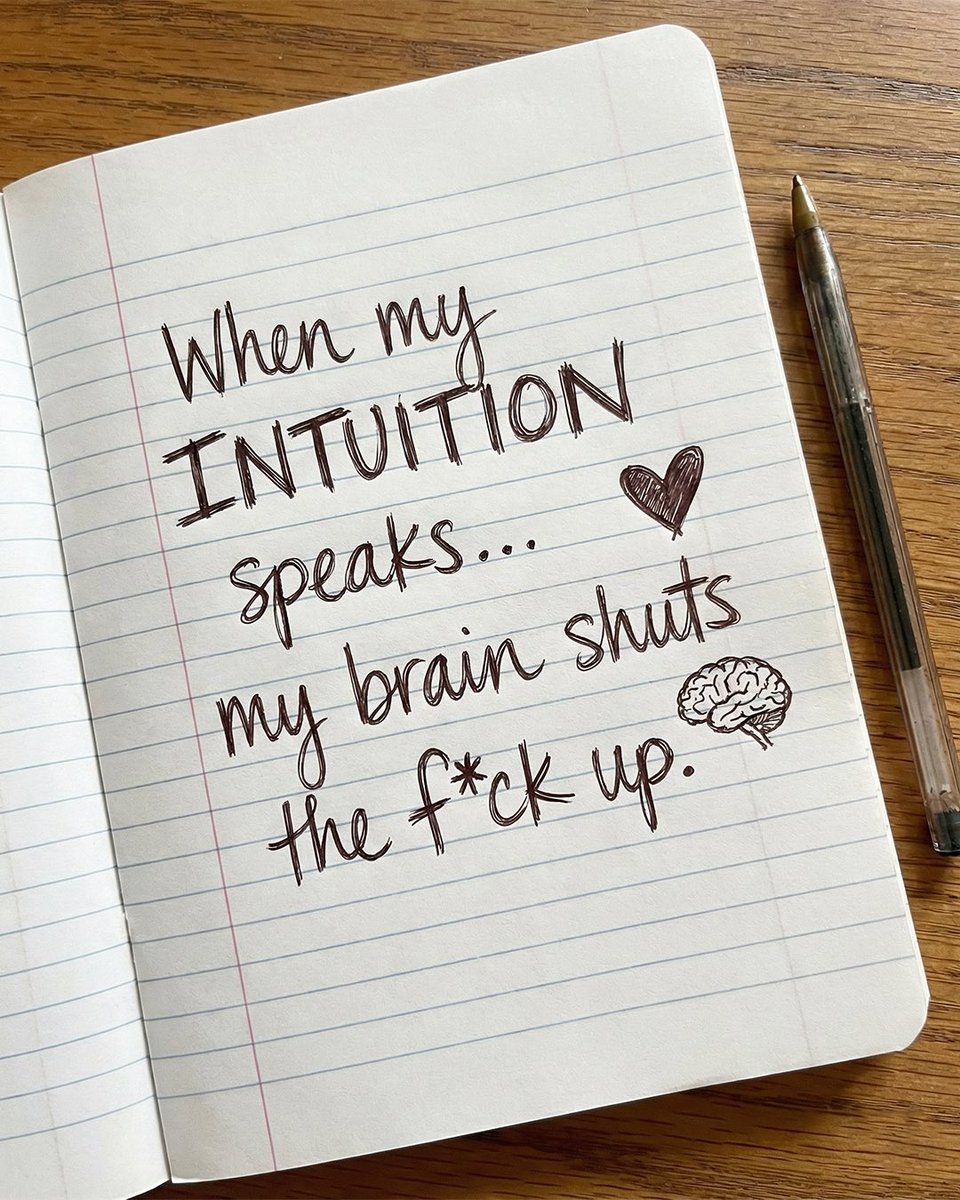 When my
INTUITION
speaks...
my brain shuts
the f*ck up.